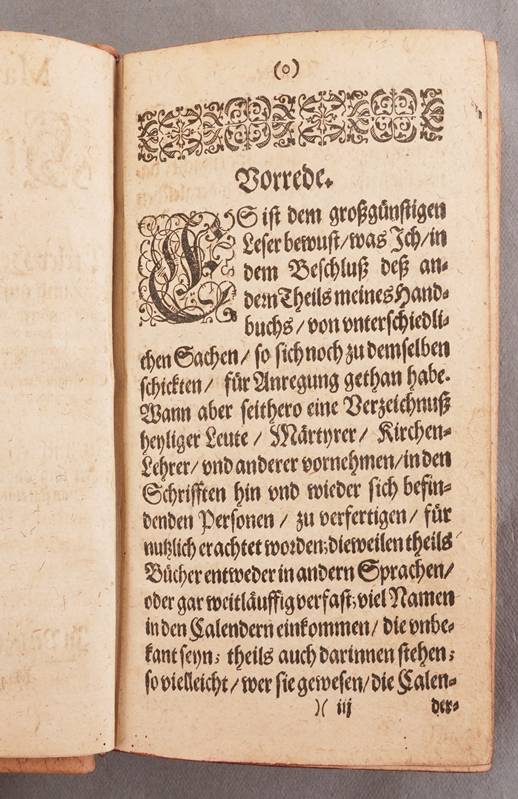 (o)
Vorrede.
ES ist dem großgünstigen
Leser bewust/was Ich/in
dem Beschluß deß an-
dern Theils meines Hand-
buchs/von vnterschiedli-
chen Sachen/so sich noch zu demselben
schickten/für Anregung gethan habe.
Wann aber seithero eine Verzeichnuß
heyliger Leute/Märtyrer/Kirchen-
Lehrer/vnd anderer vornehmen/in den
Schrifften hin vnd wieder sich befin-
denden Personen/zu verfertigen/für
nutzlich erachtet worden;dieweilen theils
Bücher entweder in andern Sprachen/
oder gar weitläuffig verfast;viel Namen
in den Calendern einkommen/die vnbe-
kant seyn; theils auch darinnen stehen;
so vielleicht/wer sie gewesen/die Calen-
)( iij der-